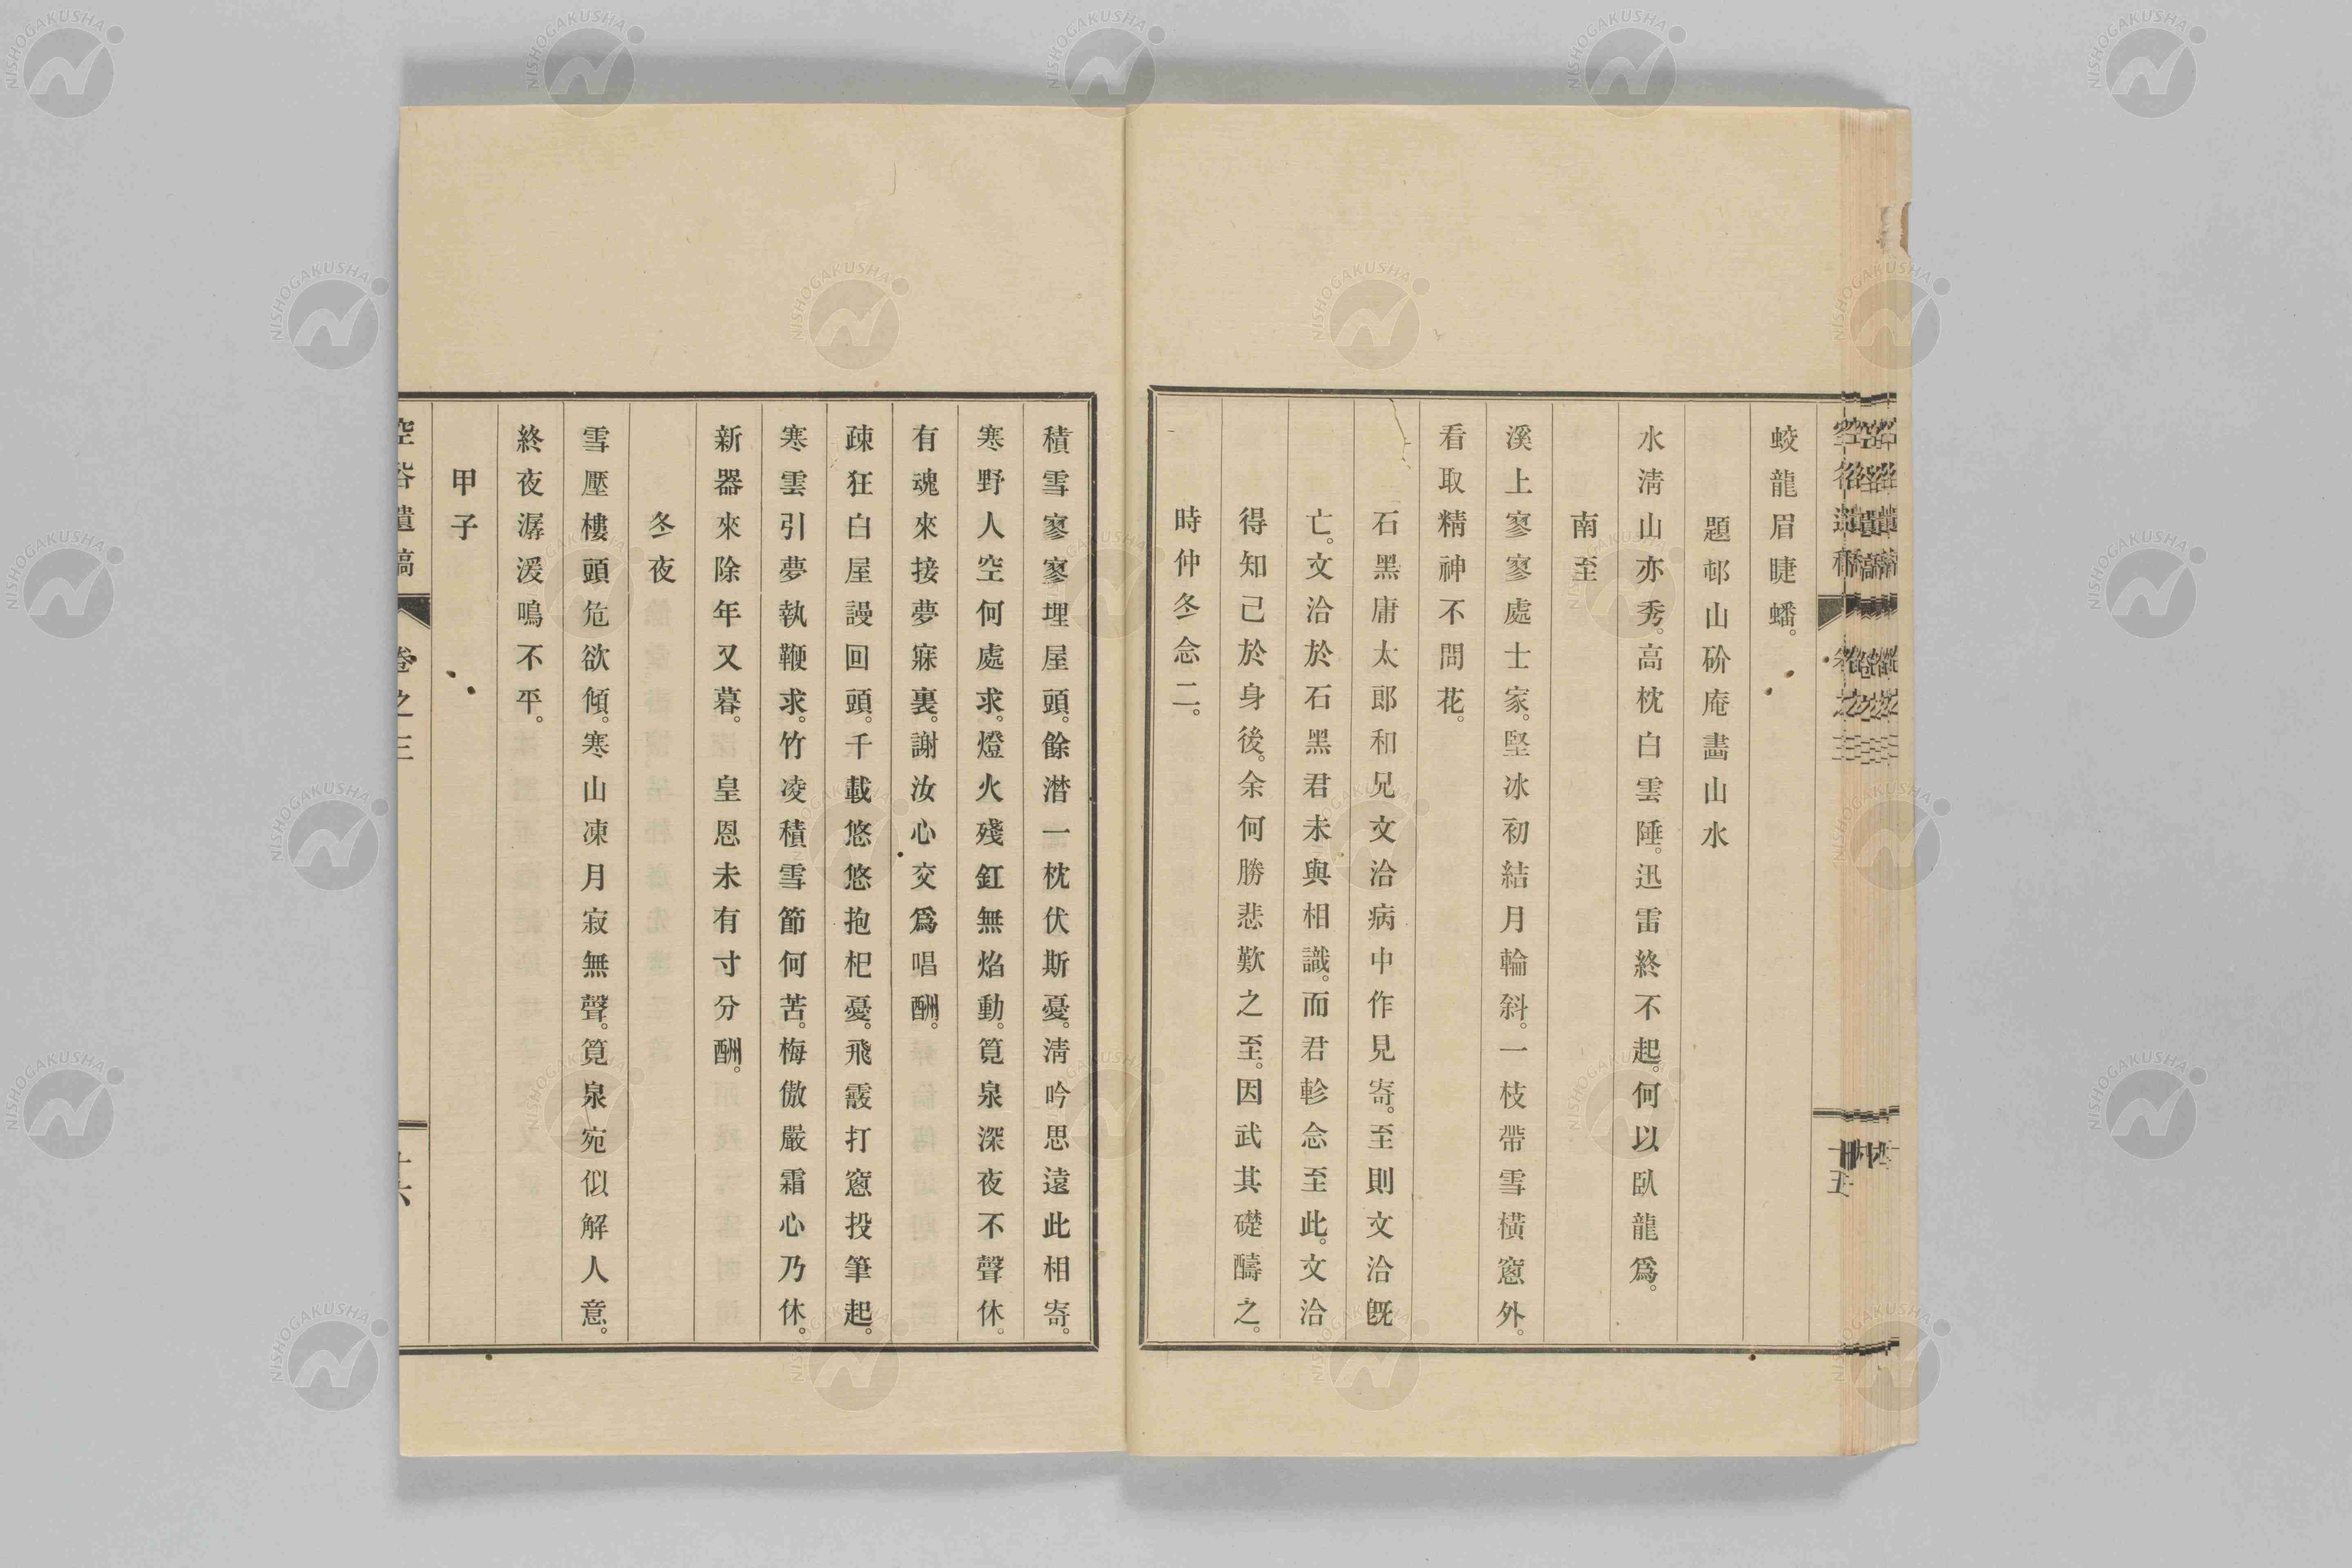 蛟龍眉睫蟠。
題邨山矿庵畵山水
水淸山亦秀。高枕白雲陲。迅雷終不起。何以臥龍爲。
南至
溪上寥寥處士家。堅冰初結月輪斜。一枝帶雪橫窻外。
看取精神不問花。
石黑庸太郎和兄文洽病中作見寄。至則文洽既
亡。文洽於石黑君未與相識。而君軫念至此。文洽
得知己於身後。余何勝悲歎之至。因武其礎醻之。
時仲冬念二。
積雪寥寥埋屋頭。餘潛一枕伏斯憂。淸吟思遠此相寄。
寒野人空何處求。燈火殘釭無焰動。筧泉深夜不聲休。
有魂來接夢寐裏。謝汝心交爲唱酬。
疎狂白屋謾回頭。千載悠悠抱杞憂。飛霰打窻投筆起。
寒雲引夢執鞭求。竹凌積雪節何苦。梅傲嚴霜心乃休。
新器來除年又暮。皇恩未有寸分酬。
冬夜
雪壓樓頭危欲傾。寒山凍月寂無聲。筧泉宛似解人意。
終夜潺湲鳴不平。
甲子
空谷遺稿 卷之三 十六
NISHOGAKUSHA